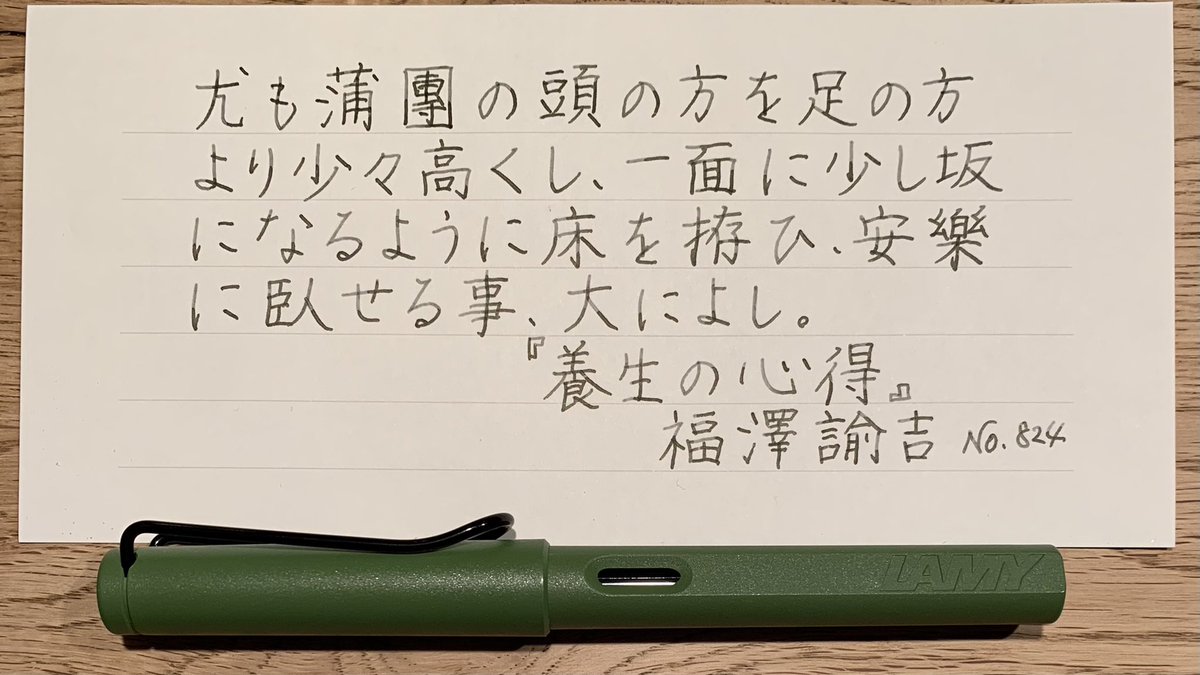 尤も蒲團の頭の方を足の方
より少々高くし、一面に少し坂
になるように床を拵ひ、安樂
に臥せる事、大によし。
『養生の心得』
福澤諭吉 No.824
LAMY